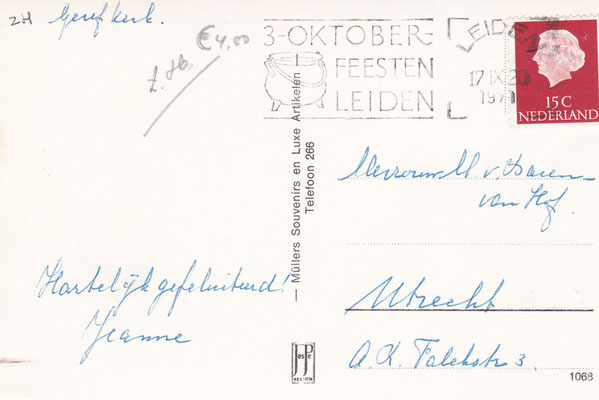 ZH Geref kerk.
€4,00
3-OKTOBER-
FEESTEN
LEIDEN
LEIDEN
17 IX 20
1971
15 C
NEDERLAND
Müllers Souvenirs en Luxe Artikelen
Telefoon 266
Mevrouw M. v. Daren-
van Hof.
Utrecht
A. K. Falckstr 3.
Hartelijk gefeliciteerd!
Jeanne
1068